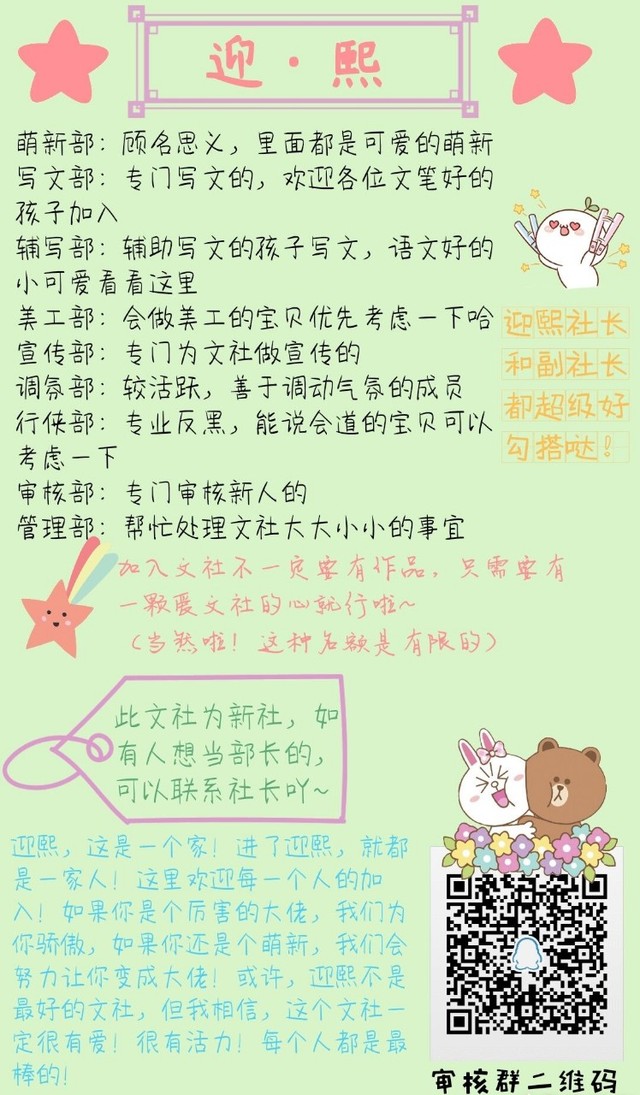 迎·熙
萌新部：顾名思义，里面都是可爱的萌新
写文部：专门写文的，欢迎各位文笔好的
孩子加入
辅写部：辅助写文的孩子写文，语文好的
小可爱看看这里
美工部：会做美工的宝贝优先考虑一下哈
宣传部：专门为文社做宣传的
调氛部：较活跃，善于调动气氛的成员
行侠部：专业反黑，能说会道的宝贝可以
考虑一下
审核部：专门审核新人的
管理部：帮忙处理文社大大小小的事宜
迎熙社长
和副社长
都超级好
勾搭哒！
加入文社不一定要有作品，只需要有
一颗爱文社的心就行啦~
（当然啦！这种名额是有限的）
此文社为新社，如
有人想当部长的，
可以联系社长吖~
迎熙，这是一个家！进了迎熙，就都
是一家人！这里欢迎每一个人的加
入！如果你是个厉害的大佬，我们为
你骄傲，如果你还是个萌新，我们会
努力让你变成大佬！或许，迎熙不是
最好的文社，但我相信，这个文社一
定很有爱！很有活力！每个人都是最
棒的！
审核群二维码